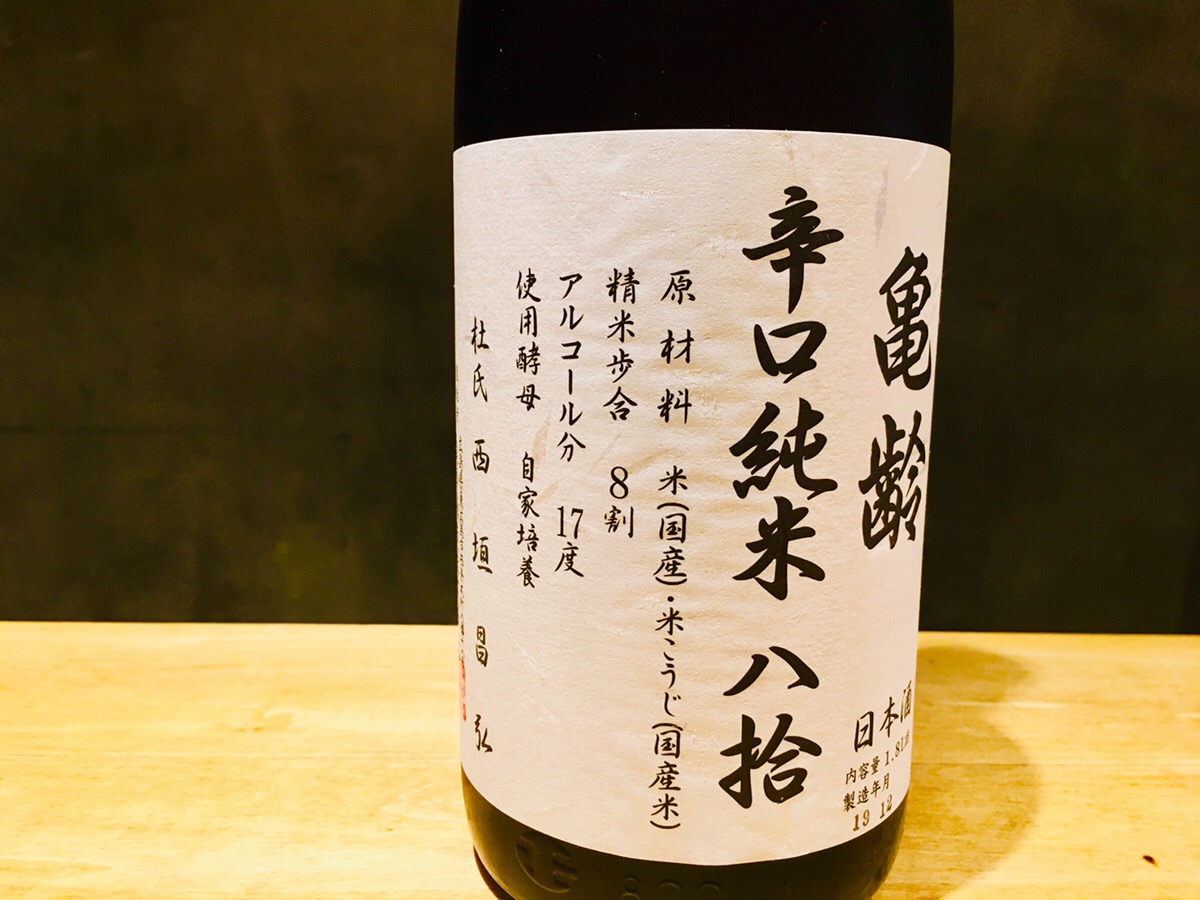 亀齢
日本酒
内容量 1.8L
製造年月
19 12
辛口純米 八拾
原材料 米(国産)・米こうじ(国産米)
精米歩合 8割
アルコール分 17度
使用酵母 自家培養
杜氏 西垣昌弘